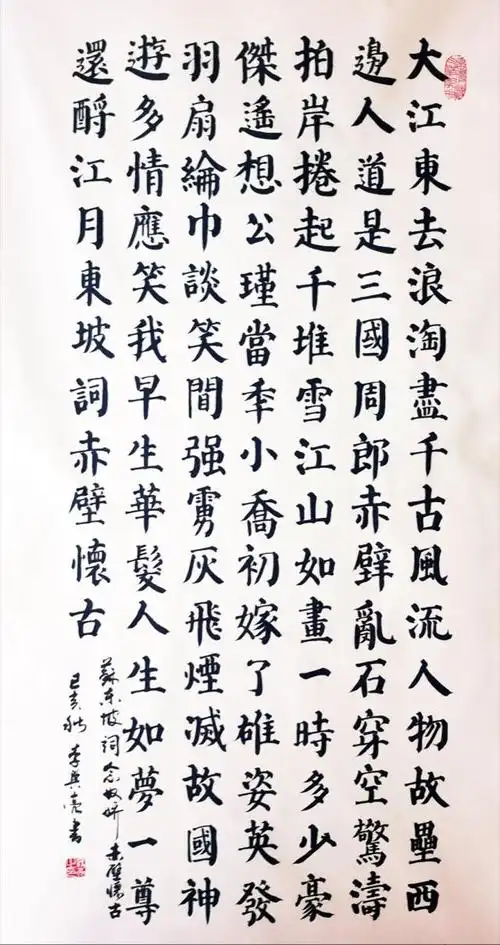 大江東去浪淘盡千古風流人物故壘西
邊人道是三國周郎赤壁亂石穿空驚濤
拍岸捲起千堆雪江山如畫一時多少豪
傑遙想公瑾當秊小喬初嫁了雄姿英發
羽扇綸巾談笑間强虜灰飛煙滅故國神
遊多情應笑我早生華髮人生如夢一尊
還酹江月東坡詞赤壁懷古
蘇东坡詞念奴娇赤壁懷古
己亥秋李興亮書